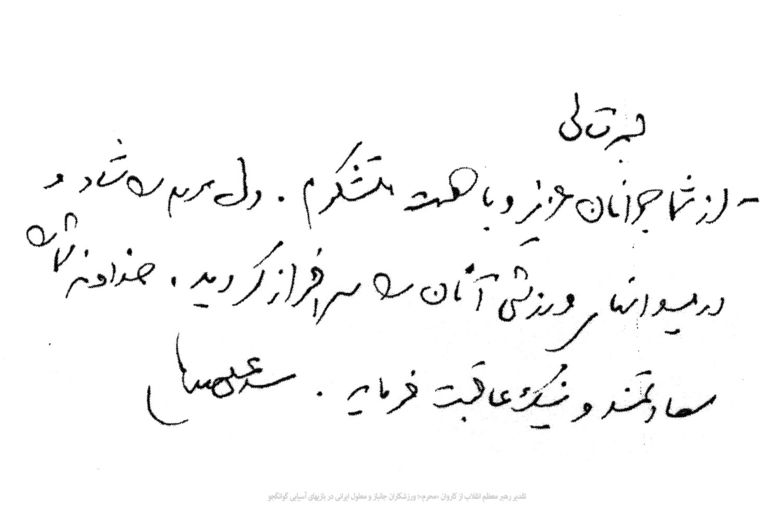 بسمه‌تعالی
- از شما جوانان عزیز و باهمت متشکرم. دل مردم را شاد و
در میدانهای ورزشی آنان را سرافراز کردید. خداوند شما را
سعادتمند و نیک‌عاقبت فرماید. سیدعلی خامنه‌ای
تقدیر رهبر معظم انقلاب از کاروان «محرم»؛ ورزشکاران جانباز و معلول ایرانی در بازیهای آسیایی گوانگجو